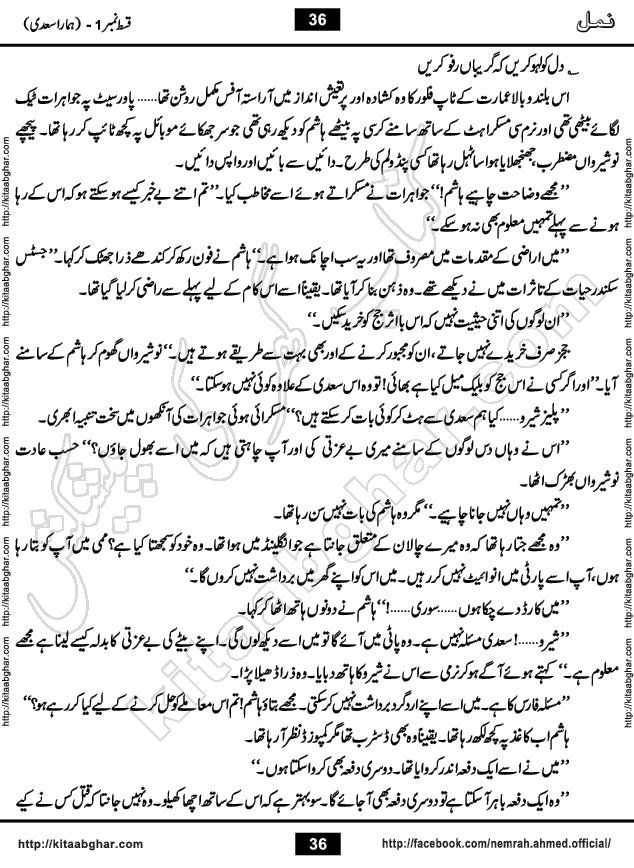 نمل
36
قسط نمبر 1 - (ہمارا سعدی)
؎ دل کو لہو کریں کہ گریباں رفو کریں
اس بلند و بالا عمارت کے ٹاپ فلور کا وہ کشادہ اور پر تعیش انداز میں آراستہ آفس مکمل روشن تھا...... پاور سیٹ پہ جواہرات ٹیک
لگائے بیٹھی تھی اور نرم سی مسکراہٹ کے ساتھ سامنے کرسی پہ بیٹھے ہاشم کو دیکھ رہی تھی جو سر جھکائے موبائل پہ کچھ ٹائپ کر رہا تھا۔ پیچھے
نوشیرواں مضطرب، جھنجھلایا ہوا سا ٹہل رہا تھا کسی پنڈولم کی طرح۔ دائیں سے بائیں اور واپس دائیں۔
’’مجھے وضاحت چاہیے ہاشم!‘‘ جواہرات نے مسکراتے ہوئے اسے مخاطب کیا۔ ’’تم اتنے بے خبر کیسے ہو سکتے ہو کہ اس کے رہا
ہونے سے پہلے تمہیں معلوم بھی نہ ہو سکے۔‘‘
’’میں اراضی کے مقدمات میں مصروف تھا اور یہ سب اچانک ہوا ہے۔‘‘ ہاشم نے فون رکھ کر کندھے ذرا جھٹک کر کہا۔ ’’جسٹس
سکندر حیات کے تاثرات میں نے دیکھے تھے۔ وہ ذہن بنا کر آیا تھا۔ یقیناً اسے اس کام کے لیے پہلے سے راضی کر لیا گیا تھا۔
’’ان لوگوں کی اتنی حیثیت نہیں کہ اس با اثر جج کو خرید سکیں۔‘‘
ججز صرف خریدے نہیں جاتے، ان کو مجبور کرنے کے اور بھی بہت سے طریقے ہوتے ہیں۔‘‘ نوشیرواں گھوم کر ہاشم کے سامنے
آیا۔ ’’اور اگر کسی نے اس جج کو بلیک میل کیا ہے بھائی! تو وہ اس سعدی کے علاوہ کوئی نہیں ہو سکتا۔‘‘
’’پلیز شیرو...... کیا ہم سعدی سے ہٹ کر کوئی بات کر سکتے ہیں؟‘‘ مسکراتی ہوئی جواہرات کی آنکھوں میں سخت تنبیہ ابھری۔
’’اس نے وہاں دس لوگوں کے سامنے میری بے عزتی کی اور آپ چاہتی ہیں کہ میں اسے بھول جاؤں؟‘‘ حسب عادت
نوشیرواں بھڑک اٹھا۔
’’تمہیں وہاں نہیں جانا چاہیے۔‘‘ مگر وہ ہاشم کی بات نہیں سن رہا تھا۔
’’وہ مجھے جتا رہا تھا کہ وہ میرے چالان کے متعلق جانتا ہے جو انگلینڈ میں ہوا تھا۔ وہ خود کو سمجھتا کیا ہے؟ ممی میں آپ کو بتا رہا
ہوں، آپ اسے پارٹی میں انوائیٹ نہیں کر رہیں۔ میں اس کو اپنے گھر میں برداشت نہیں کروں گا۔‘‘
’’میں کارڈ دے چکا ہوں...... سوری......!‘‘ ہاشم نے دونوں ہاتھ اٹھا کر کہا۔
’’شیرو......! سعدی مسئلہ نہیں ہے۔ وہ پاٹی میں آئے گا تو میں اسے دیکھ لوں گی۔ اپنے بیٹے کی بے عزتی کا بدلہ کیسے لینا ہے مجھے
معلوم ہے۔‘‘ کہتے ہوئے آگے ہو کر نرمی سے اس نے شیرو کا ہاتھ دبایا۔ وہ ذرا ڈھیلا پڑا۔
’’مسئلہ فارس کا ہے۔ میں اسے اپنے ارد گرد برداشت نہیں کر سکتی۔ مجھے بتاؤ ہاشم! تم اس معاملے کو حل کرنے کے لیے کیا کر رہے ہو؟‘‘
ہاشم اب کاغذ پہ کچھ لکھ رہا تھا۔ یقیناً وہ بھی ڈسٹرب تھا مگر کمپوزڈ نظر آ رہا تھا۔
’’میں نے اسے ایک دفعہ اندر کروایا تھا۔ دوسری دفعہ بھی کروا سکتا ہوں۔‘‘
’’وہ ایک دفعہ باہر آ سکتا ہے تو دوسری دفعہ بھی آ جائے گا۔ سو بہتر ہے کہ اس کے ساتھ اچھا کھیلو۔ وہ نہیں جانتا کہ قتل کس نے کیے
http://kitaabghar.com
36
http://facebook.com/nemrah.ahmed.official/
http://kitaabghar.com
http://kitaabghar.com
http://kitaabghar.com
http://kitaabghar.com
http://kitaabghar.com
http://kitaabghar.com
http://kitaabghar.com
http://kitaabghar.com
http://kitaabghar.com
http://kitaabghar.com
http://kitaabghar.com
http://kitaabghar.com
کتاب گھر کی پیشکش
kitaabghar.com